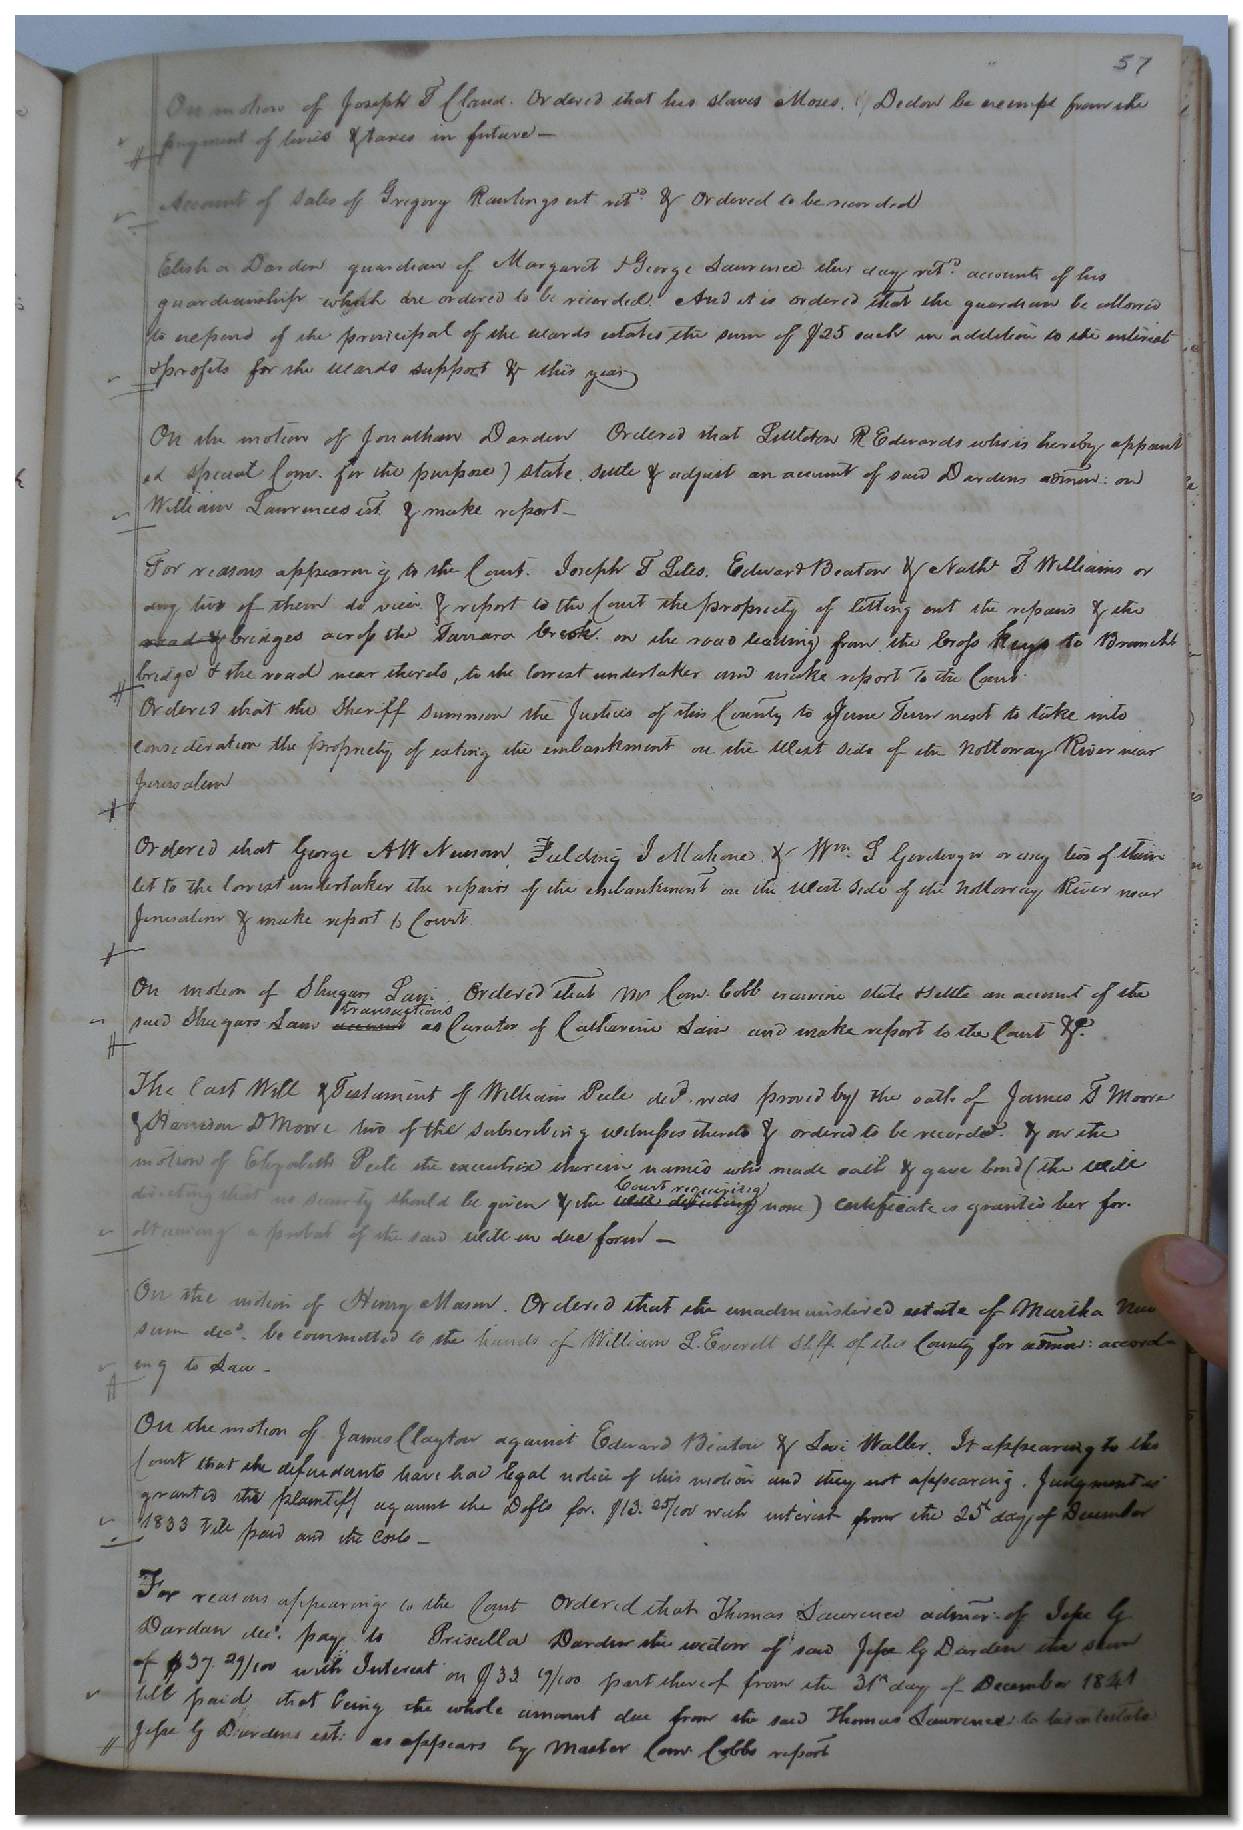 57
On motion of Joseph T Claud. Ordered that his slaves Moses. & Dedon be exempt from the
payment of levies & taxes in future —
Account of sales of Gregory Rawlings est retd. & Ordered to be recorded
Elisha Darden guardian of Margaret & George Lawrence this day retd. accounts of his
guardianship which are ordered to be recorded. And it is ordered that the guardian be allowed
to expend of the principal of the wards estates the sum of $25 each in addition to the interest
& profits for the wards support & this year
On the motion of Jonathan Darden Ordered that Littleton R Edwards who is hereby appoint
ed special Com. for the purpose) state. settle & adjust an account of said Dardens admon: on
William Lawrences est. & make report —
For reasons appearing to the Court. Joseph T Liles. Edward Beaton & Nathl. T Williams or
any two of them do view & report to the Court the propriety of letting out the repairs & the
road & bridges across the Tarrara Creek. on the road leading from the Cross Keys to Branch
bridge & the road near thereto, to the lowest undertaker and make report to the Court
Ordered that the Sheriff summon the Justices of this County to June Term next to take into
consideration the propriety of the embankment on the West side of the Nottoway River near
Jerusalem
Ordered that George A W Newsom, Fielding J Mahone & Wm. S or any two of them
let to the lowest undertaker the repairs of the embankment on the West side of the Nottoway River near
Jerusalem & make report to Court
On motion of Shugars Lain Ordered that Mr Com. Cobb examine state & settle an account of the
said Shugars Lain account transactions as Curator of Catharine Lain and make report to the Court &c.
The last Will & Testament of William Peele decd. was proved by the oath of James T Moore
& Harrison D Moore two of the subscribing witnesses thereto & ordered to be recorded. & on the
motion of Elizabeth Peele the executrix therein named who made oath & gave bond (the will
directing that no security should be given & the will directing Court requiring none) certificate is granted her for.
obtaining a probat of the said will in due form —
On the motion of Henry Mason. Ordered that the unadministered estate of Martha New
sum decd. be committed to the hands of William L. Everett Shff of this County for admon: accord-
ing to Law —
On the motion of James Clayton against Edward Beaton & Levi Waller. It appearing to the
Court that the defendants have had legal notice of this motion and they not appearing. Judgment is
granted the plaintiff against the Defts for. $13. 25/100 with interest from the 25th day of December
1833 till paid and the costs —
For reasons appearing to the Court Ordered that Thomas Lawrence admor. of Jesse G
Darden decd. pay to Priscilla Darden the widow of said Jesse G Darden the sum
of $37. 29/100 with Interest on $33 19/100 part thereof from the 31st day of December 1841
till paid, that being the whole amount due from the said Thomas Lawrence to his intestate
Jesse G Dardens est: as appears by Master Com. Cobbs report